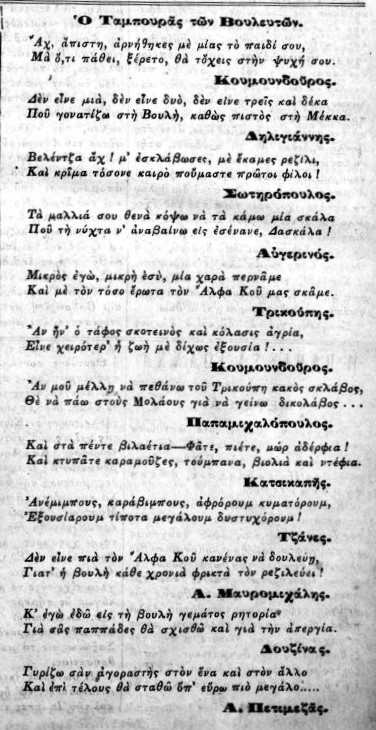 Ὁ Ταμπουρᾶς τῶν Βουλευτῶν.
Ἄχ, ἄπιστη, ἀρνήθηκες μὲ μίας τὸ παιδί σου,
Μὰ ὅ,τι πάθει, ξέρετο, θὰ τὄχεις στὴν ψυχή σου.
Κουμουνδοῦρος.
Δὲν εἶνε μιὰ, δὲν εἶνε δυὸ, δὲν εἶνε τρεῖς καὶ δέκα
Ποῦ γονατίζω στὴ Βουλὴ, καθὼς πιστὸς στὴ Μέκκα.
Δηλιγιάννης.
Βελέντζα ἄχ! μ' ἐσκλάβωσες, μὲ ἔκαμες ρεζίλι,
Καὶ κρῖμα τόσονε καιρὸ ποὔμαστε πρῶτοι φίλοι!
Σωτηρόπουλος.
Τὰ μαλλιά σου θενὰ κόψω νὰ τὰ κάμω μία σκάλα
Ποῦ τὴ νύχτα ν' ἀναβαίνω εἰς ἐσένανε, Δασκάλα!
Αὐγερινός.
Μικρὸς ἐγὼ, μικρὴ ἐσὺ, μία χαρὰ περνᾶμε
Καὶ μὲ τὸν τόσο ἔρωτα τὸν Ἄλφα Κοῦ μας σκᾶμε.
Τρικούπης.
Ἂν ἦν' ὁ τάφος σκοτεινὸς καὶ κόλασις ἀγρία,
Εἶνε χειρότερ' ἡ ζωὴ μὲ δίχως ἐξουσία!...
Κουμουνδοῦρος.
Ἂν μοῦ μέλλῃ νὰ πεθάνω τοῦ Τρικούπη κακὸς σκλάβος,
Θὲ νὰ πάω στοὺς Μολάους γιὰ νὰ γείνω δικολάβος...
Παπαμιχαλόπουλος.
Καὶ στὰ πέντε βιλαέτια—Φᾶτε, πιέτε, μὼρ ἀδέρφια!
Καὶ κτυπᾶτε καραμοῦζες, τούμπανα, βιολιὰ καὶ ντέφια.
Κατσικαπῆς.
Ἀνέμιμπους, καράβιμπους, ἀφρόρουμ κυματόρουμ,
Ἐξουσίαρουμ τίποτα μεγάλουμ δυστυχόρουμ!
Τζάνες.
Δὲν εἶνε πιὰ τὸν Ἄλφα Κοῦ κανένας νὰ δουλεύῃ,
Γιατ' ἡ βουλὴ κάθε χρονιὰ φρικτὰ τὸν ρεζιλεύει!
Α. Μαυρομιχάλης.
Κ' ἐγὼ ἐδῶ εἰς τὴ βουλὴ γεμάτος ρητορία
Γιὰ σᾶς παππάδες θὰ σχισθῶ καὶ γιὰ τὴν ἀπεργία.
Δουζίνας.
Γυρίζω σὰν ἀγοραστὴς στὸν ἕνα καὶ στὸν ἄλλο
Καὶ ἐπὶ τέλους θὰ σταθῶ ὅπ' εὕρω πιὸ μεγάλο.....
Α. Πετιμεζᾶς.